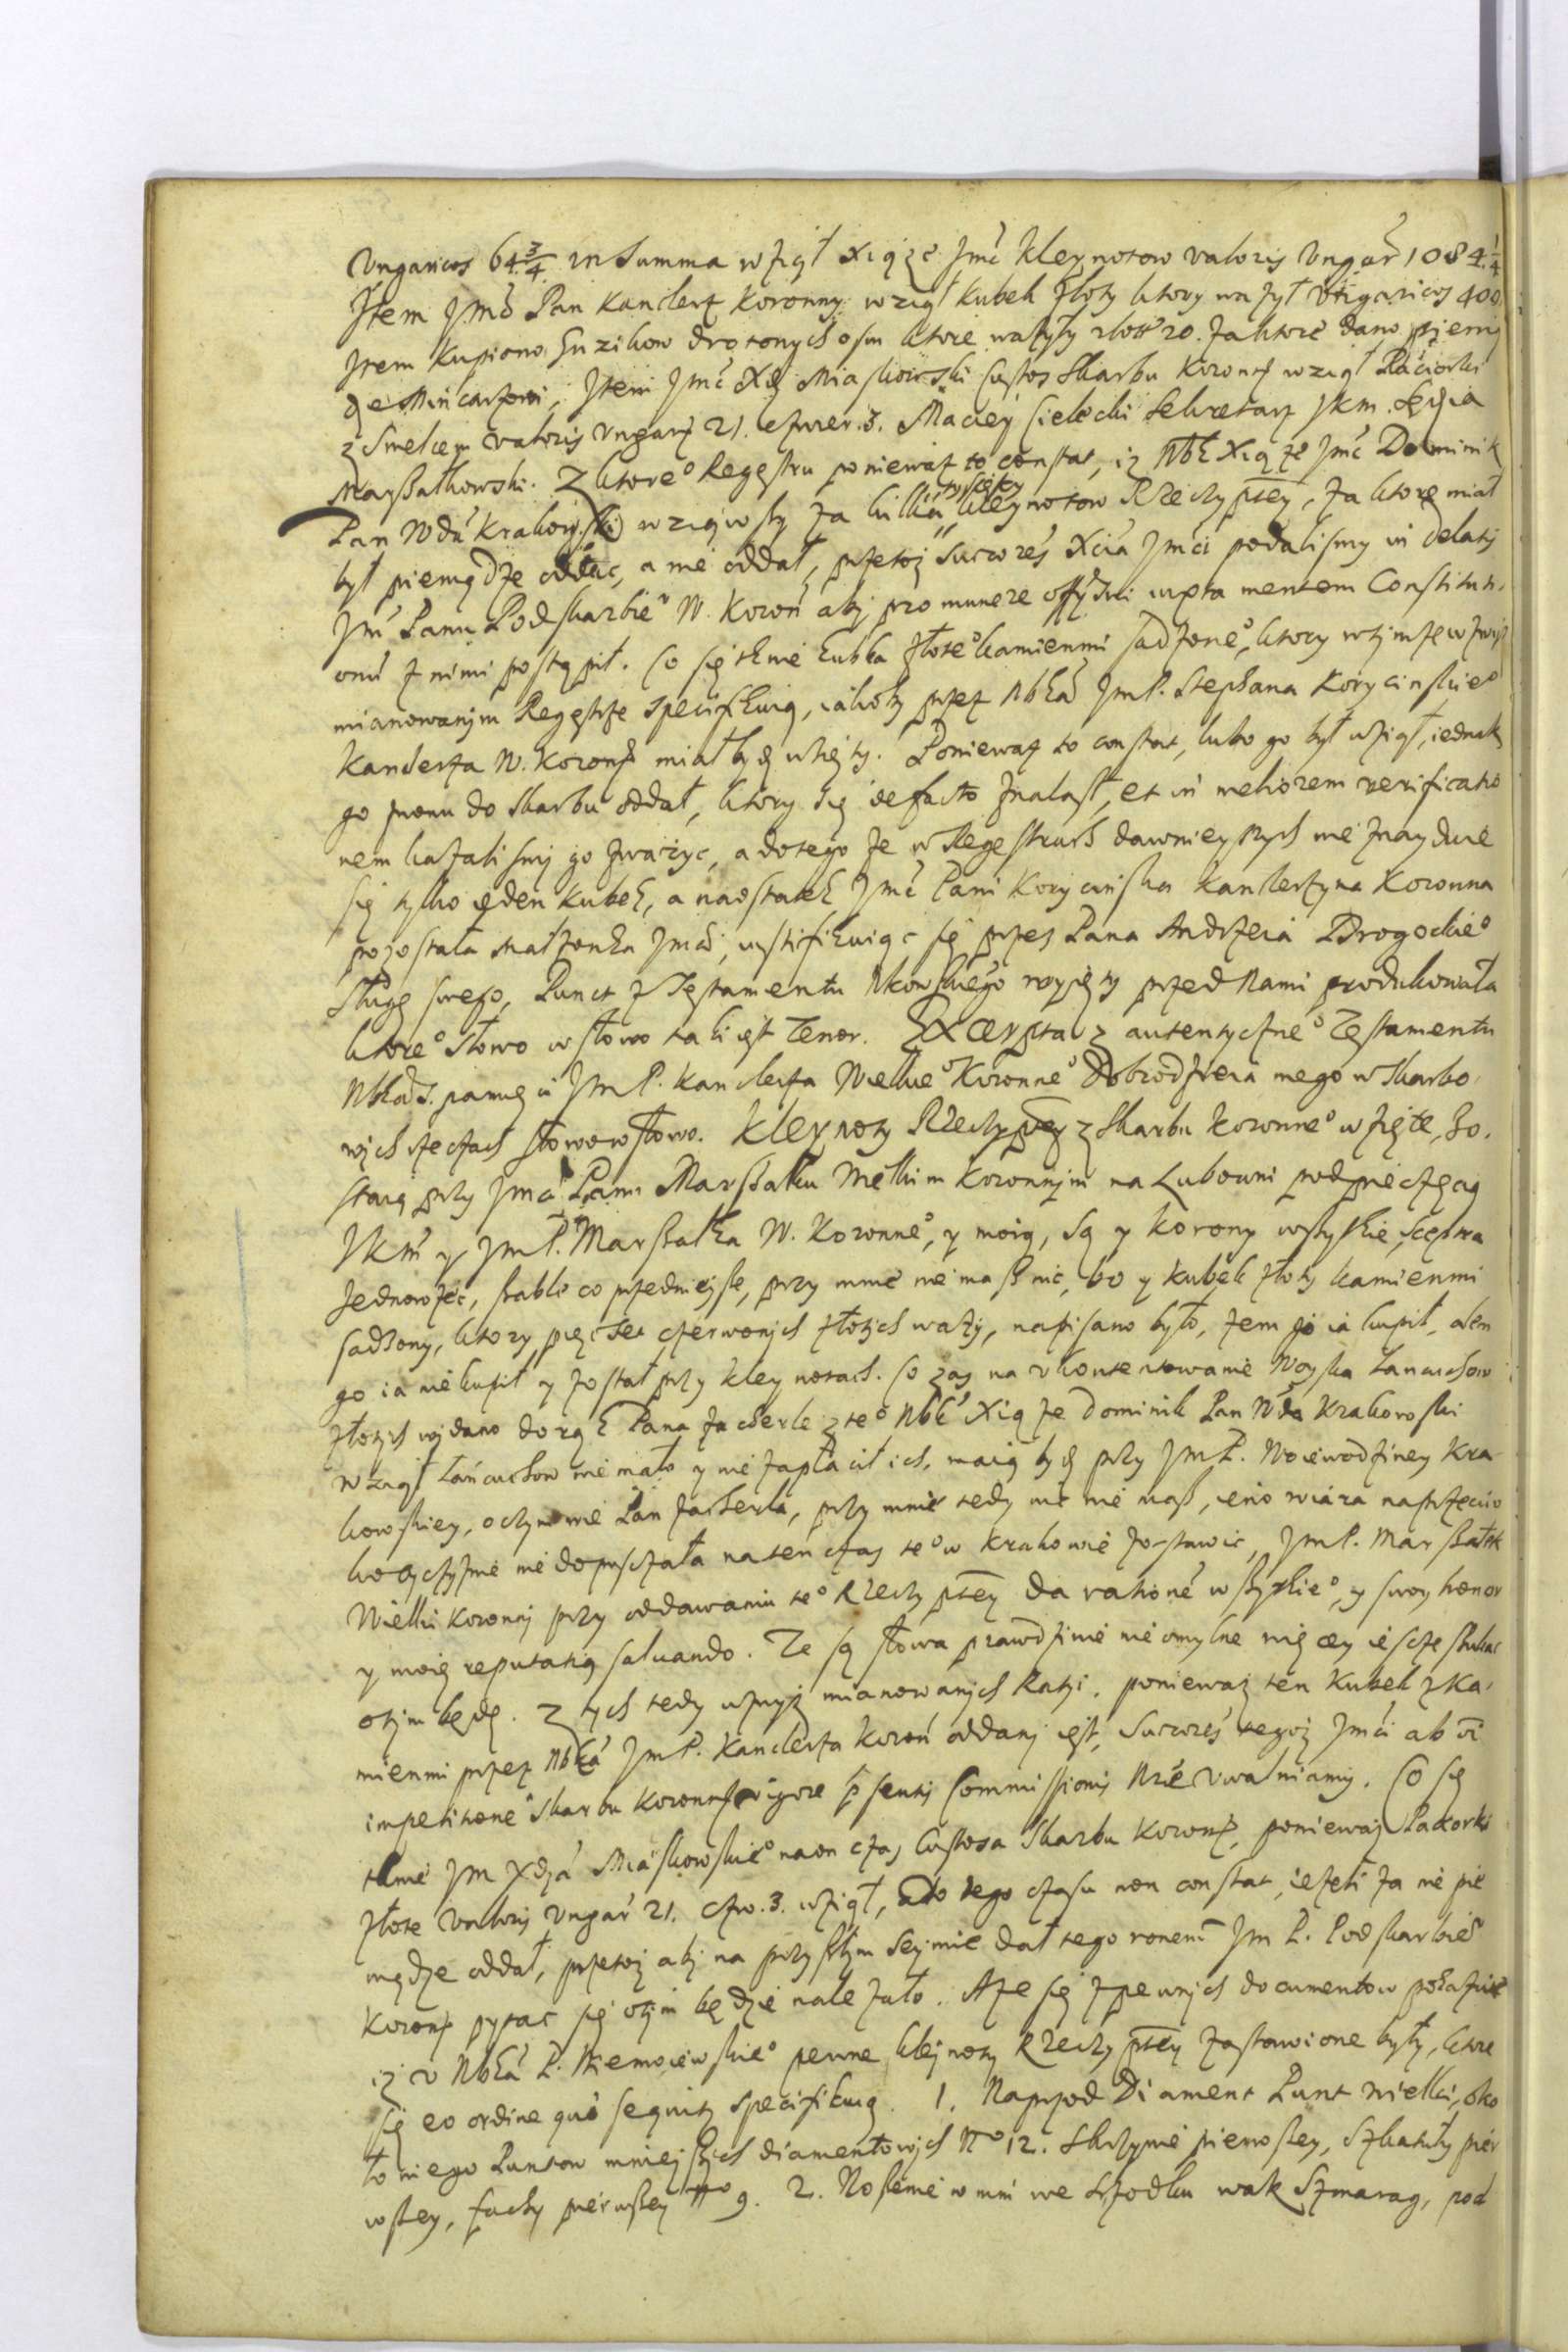 Ungaricos 64 3/4 in Summa wziął Xiąże Jmć kleynotow valoris Ungar̃ 1084 1/4
Item Jmć Pan Kanclerz Koronny wziął kubek złoty ktory ważył Ungaricos 400
Item kupiono Guzikow drotonych osm ktore ważyły zlott 20. za ktore dano pienią
dze Mincarzowi, Item Jmć Xdz Miaskowski Custos Skarbu Koronn wziął Paciorki
z Smelcem valoris Ungar 21. czwier. 3. Maciey Sielecki Sekretarz Jkm. Sędzia
Marszałkowski. Z ktore° Regestru ponieważ to constat, iż Nbk Xiąże Jmć Dominik
Pan Wda Krakowski wziąwszy za kilka tysięcy kleynotow Rzeczyptey, za ktore miał
był pieniądze oddac, a nie oddał, przetoż Succores Xcia Jmci podalismy in delatis
Jmć Panu Podskarbie° W. Koron aby pro munere offŷ sui iuxta mentem Constituti
onu z nimi postąpił. Co się tknie kubka złote° kamienmi sadzone°, ktory wtymże wzwyż
mianowanym Regestrze specifikuią, iakoby przez Nbka JmP. Stephana Korycinskie°
Kanclerza W. Koronn miał bydz wzięty. Ponieważ to constat, lubo go był wziął, iednak
go znowu do Skarbu oddał, ktory się defacto znalazł, et in meliorem verificatio
nem kazalismy go zważyc, a dotego że w Regestrach dawnieyszych nie znayduie
się tylko ieden kubek, a naostatek Jmć Pani Korycinska Kanclerzyna Koronna
pozostała Małżonka Jmci, iustifikuiąc się przez Pana Andrzeia Drogockie°
Sługę swego, Punct z Testamentu Mkowskiego wyięty przed Nami produkowała
ktore° słowo wsłowo taki iest Tenor. Excerpta z autentyczne° Testamentu
Nbka S. pamięci JmP. Kanclerza Wielkie° Koronne° Dobrodzieia mego w Skarbo
wych rzeczach słowo w słowo. Kleynoty Rzeczyptey z Skarbu Koronne° wzięte, Zo,
staią przy Jmci Panu Marszałku Wielkim Koronnym na Lubowni podpieczęcią
Jkm y JmP. Marszałka W. Koronne°, y moią, są y korony wszytkie, sceptra
Jednowżec, szable co przednieysze, przy mnie nie masz nic, bo y kubek złoty kamienmi
sadzony, ktory pięcset czerwonych złotych waży, napisano było, żem go ia kupił, alem
go ia nie kupił y został przy kleynotach. Co zas na ukontentowanie Woyska Lancuchow
złotych wydano do rąk Pana Zacherle z te° Nbk Xiąże Dominik Pan Wda Krakowski
wziął Łańcuchow nie mało y nie zapłacił ich, maią bydz przy JmP. Woiewodziney Kra
kowskiey, oczym wie Pan Zacherla, przy mnie tedy nic nie masz, ieno wiara naprzeciw
ko oyczyznie niedopusczała na ten czas te° w Krakowie zostawic, JmP. Marszałek
Wielki Koronny przy oddawaniu te° Rzeczyptey da rationē wszytkie°, y swoy honor
y moię reputatią salvando. Te są słowa prawdziwie nieomylne więcey iescze szukac
otym będę. Z tych tedy wzwyż mianowanych Ratij, ponieważ ten kubek z Ka
mienmi przez Nbka JmP. Kanclerza Koron oddany iest, Succores tegoż Jmci ab oī
impetitione Skarbu Koronn vigore p̄sentis Commissionis Nrāe uwalniamy. Co się
tknie Jm Xdza Miaskowskie° na on czas Custosa Skarbu Koronn, ponieważ Paciorki
złote valoris Ungar 21. czw. 3. wziął, ado tego czasu non constat, ieżeli za nie pie
niądze oddał, przetoż aby na przyszłym Seymie dał tego rōnem Jm P. Podskarbie°
Koronn pytac się otym będzie należało. Aże się z pewnych documentow pokazuie
iż u Nbka P. Niemoiewskie° pewne kleynoty Rzeczyptey zastawione były, ktore
się eo ordine quo sequitur specifikuią. 1. Naprzod Diament Punt wielki, oko
ło niego Puntow mnieyszych diamentowych N° 12. Skrzynie pierwszey, Szkatuły pier
wszey, fochy pierwszey N° 9. 2. Noszenie w nim we srzodku wak Szmarag, pod